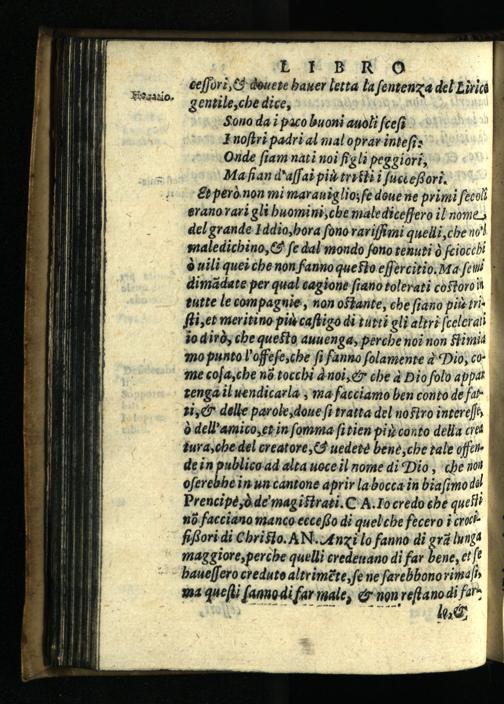 LIBRO
ceſſori, & douete hauer letta la ſentenza del Lirico
Horatio.
gentile, che dice,
Sono da i poco buoni auoli ſceſi
I noſtri padri al mal oprar inteſi:
Onde ſiam nati noi figli peggiori,
Ma fian d'aſſai più triſti i ſucceſſori.
Et però non mi marauiglio, ſe doue ne primi ſecoli
erano rari gli huomini, che malediceſſero il nome
del grande Iddio, hora ſono rariſſimi quelli, che nō'l
maledichino, & ſe dal mondo ſono tenuti ò ſciocchi
ò uili quei che non fanno queſto eſſercitio. Ma ſe mi
dimādate per qual cagione ſiano tolerati coſtoro in
tutte le compagnie, non oſtante, che ſiano più tri-
ſti, et meritino più caſtigo di tutti gli altri ſcelerati
io dirò, che queſto auuenga, perche noi non ſtimia
mo punto l'offeſe, che ſi fanno ſolamente à Dio, co-
me coſa, che nō tocchi à noi, & che à Dio ſolo appar
tenga il uendicarla, ma facciamo ben conto de fat-
ti, & delle parole, doue ſi tratta del noſtro intereſſe,
ò dell'amico, et in ſomma ſi tien più conto della crea
tura, che del creatore, & uedete bene, che tale offen-
de in publico ad alta uoce il nome di Dio, che non
oſerebbe in un cantone aprir la bocca in biaſimo del
Prencipe, ò de' magiſtrati. CA. Io credo che queſti
nō facciano manco ecceſſo di quel che fecero i croci-
fiſſori di Chriſto. AN. Anzi lo fanno di grā lunga
maggiore, perche quelli credeuano di far bene, et ſe
haueſſero creduto altrimēte, ſe ne ſarebbono rimaſi,
ma queſti ſanno di far male, & non reſtano di far-
lo, &